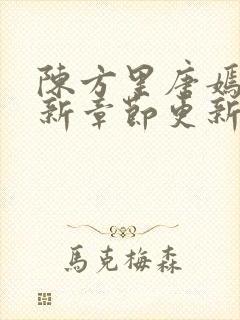 陳方墨唐嫣
新章節更新
馬克梅森